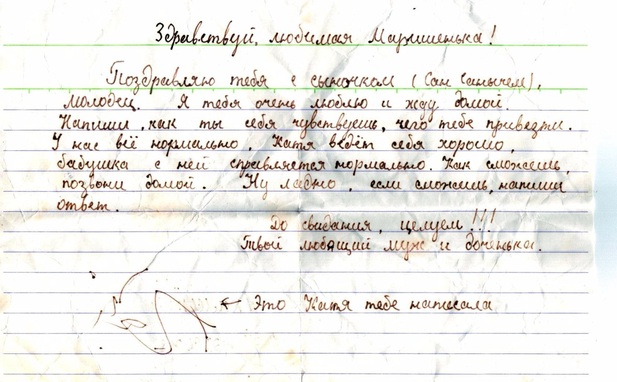 Здравствуй, любимая Маришенька!
Поздравляю тебя с сыночком (Сан Санычем),
молодец. Я тебя очень люблю и жду домой.
Напиши, как ты себя чувствуешь, чего тебе привезти.
У нас всё нормально. Катя ведёт себя хорошо,
бабушка с ней справляется нормально. Как сможешь,
позвони домой. Ну ладно, если сможешь, напиши
ответ.
До свидания, целуем!!!
Твой любящий муж и доченька.
← Это Катя тебе написала